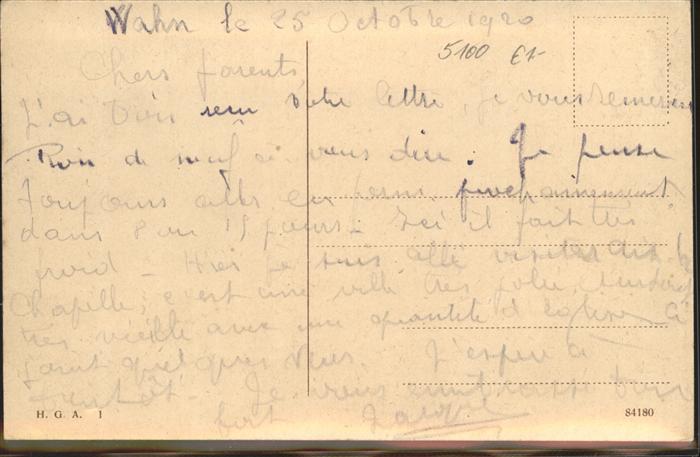 Wahn le 25 Octobre 1920
5100 €1-
Chers parents,
J'ai bien reçu votre lettre, je vous remercie
Rien de neuf à vous dire. Je pense
toujours aller en perm prochainement
dans 8 ou 15 jours. Ici il fait très
froid - Hier je suis allé visiter Aix la
Chapelle, c'est une ville très jolie,
très vieille avec une quantité d'églises
quelques vues. J'espère à
bientôt. Je vous embrasse bien
fort
H. G. A. 1
84180